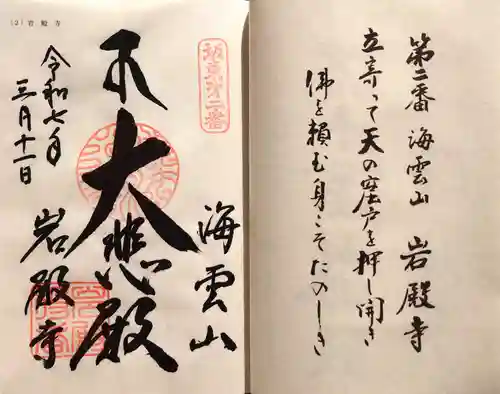 第二番 海雲山 岩殿寺
立寄って天の戸を押し開き
佛を頼む身こそたのしき
(2) 岩殿寺
坂東第二番
海雲山
大悲殿
岩殿寺
令和七年
三月十一日